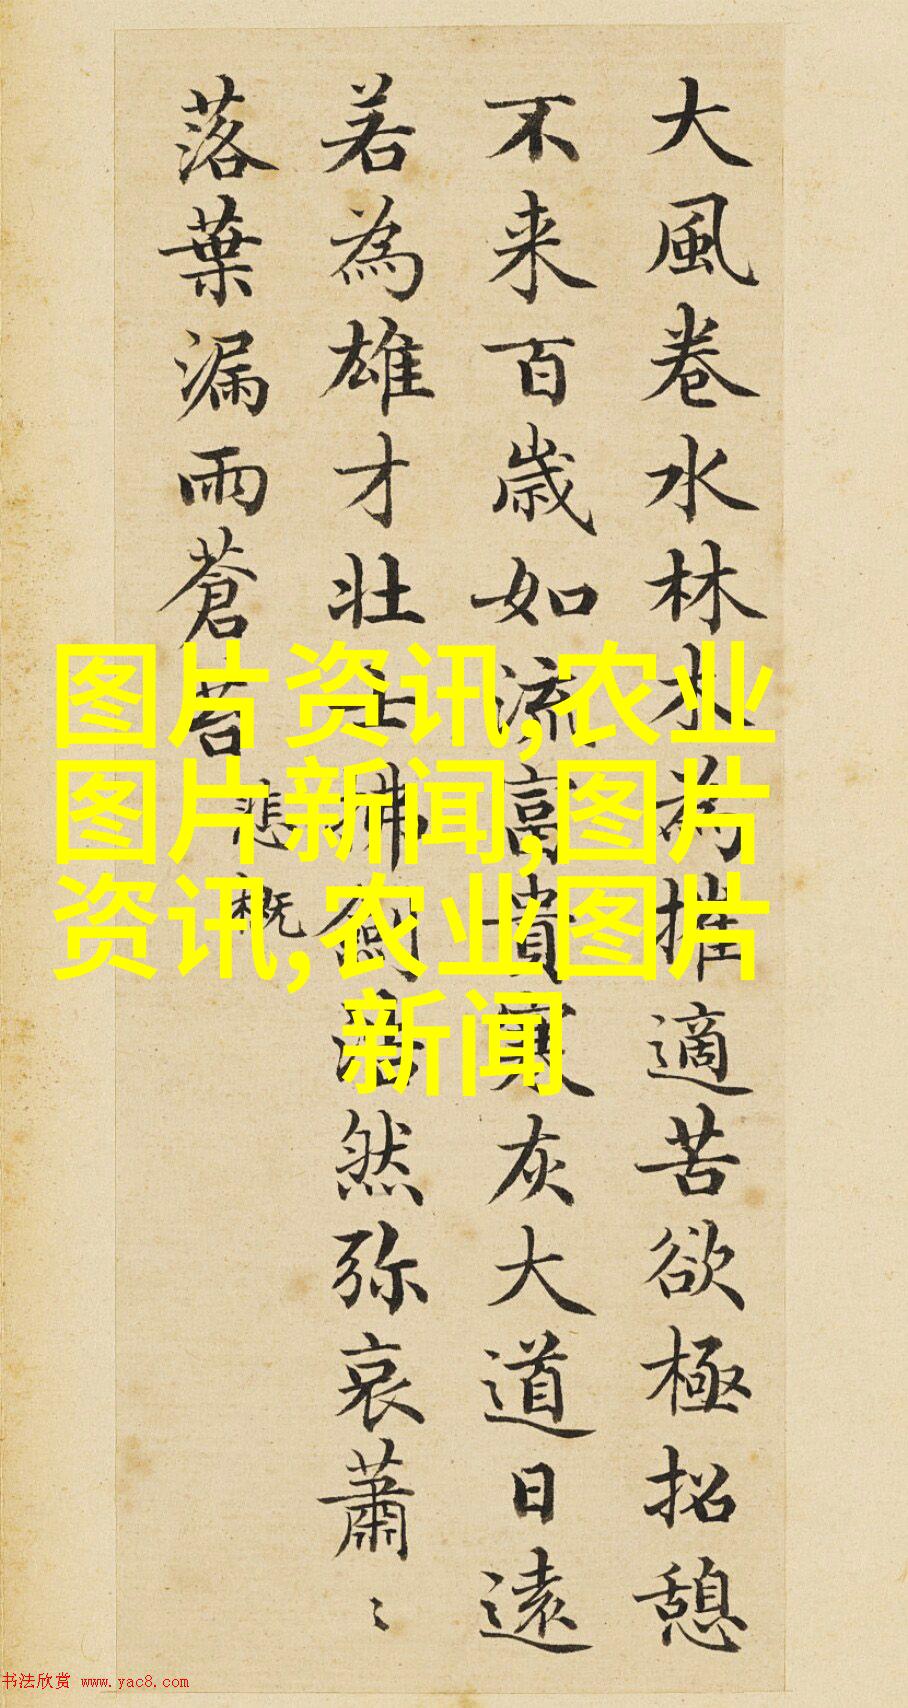 大風卷水林木為摧適苦欲極招憩
不来百歳如流貴寒灰大道日遠
若為雄才壮士拂劍浩然弥哀蕭〻
落葉漏雨蒼苔
悲概
图片资讯,农业
图片新闻,图片
资讯,农业图片
新闻
书法欣赏 www.yac8.com